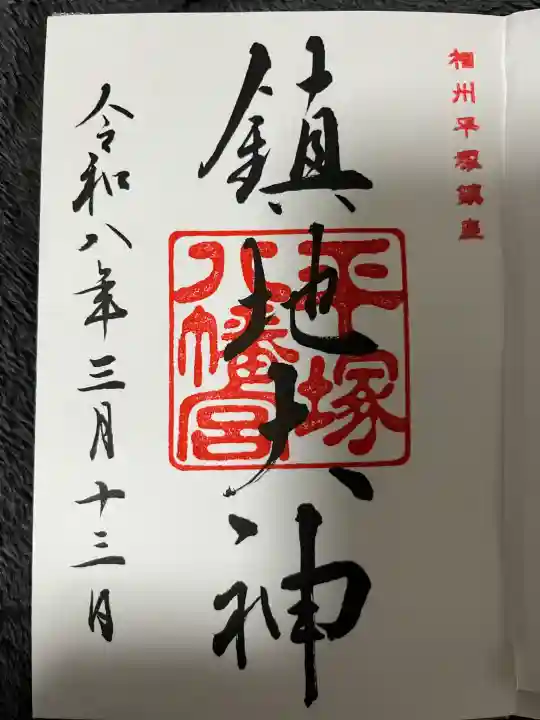 相州平塚鎮座
鎮地大神
平塚
八幡宮
令和八年三月十三日